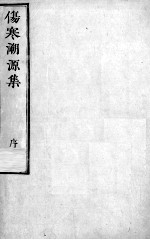 傷寒溯源集
序